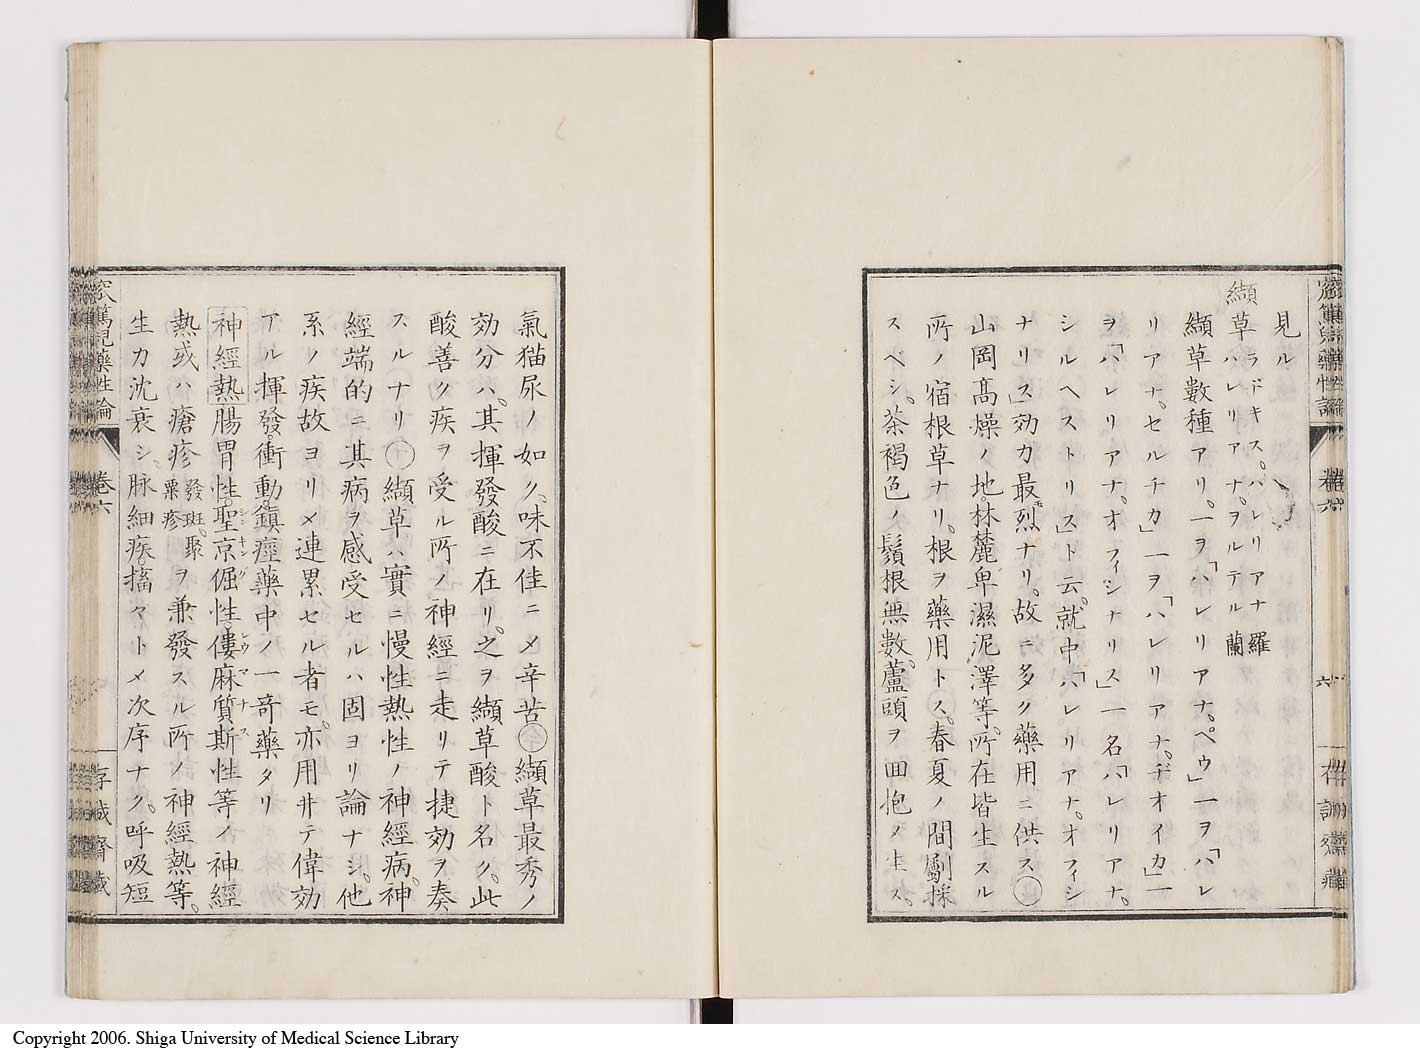 見ル
纈草 ラドキス。ハレリアナ 羅
ハレリアナ。ヲルテル 蘭
纈草數種アリ。一ヲ「ハレリアナ。ペウ」一ヲ「ハレ
リアナ。セルチカ」一ヲ「ハレリアナ。ヂオイカ」一
ヲ「ハレリアナ。オフィシナリス」一名「ハレリアナ。
シルヘストリス」ト云。就中「ハレリアナ。オフィシ
ナリス」効力最烈ナリ。故ニ多ク藥用ニ供ス〇
山岡高燥ノ地。林麓卑濕泥澤等。所在皆生スル
所ノ宿根草ナリ。根ヲ藥用トス。春夏ノ間劚採
スベシ。茶褐色ノ鬚根無數。蘆頭ヲ回抱メ生ス。
氣猫尿ノ如ク。味不佳ニメ辛苦〇纈草最秀ノ
効分ハ。其揮發酸ニ在リ。之ヲ纈草酸ト名ク。此
酸善ク疾ヲ受ル所ノ神經ニ走リテ捷効ヲ奏
スルナリ〇纈草ハ實ニ慢性熱性ノ神經病。神
經端的ニ其病ヲ感受セルハ固ヨリ論ナシ。他
系ノ疾故ヨリメ連累セル者モ。亦用井テ偉効
アル揮發。衝動。鎭痙藥中ノ一奇藥タリ
神經熱腸胃性。聖京倔性。僂麻質斯性等ノ神經
熱或ハ瘡疹 發斑。聚粟疹 ヲ兼發スル所ノ神經熱等。
生力沈衰シ。脉細疾。搐々トメ次序ナク。呼吸短
窊篤児藥性論
卷六
存誠齋藏
卷六
六
Copyright 2006. Shiga University of Medical Science Library